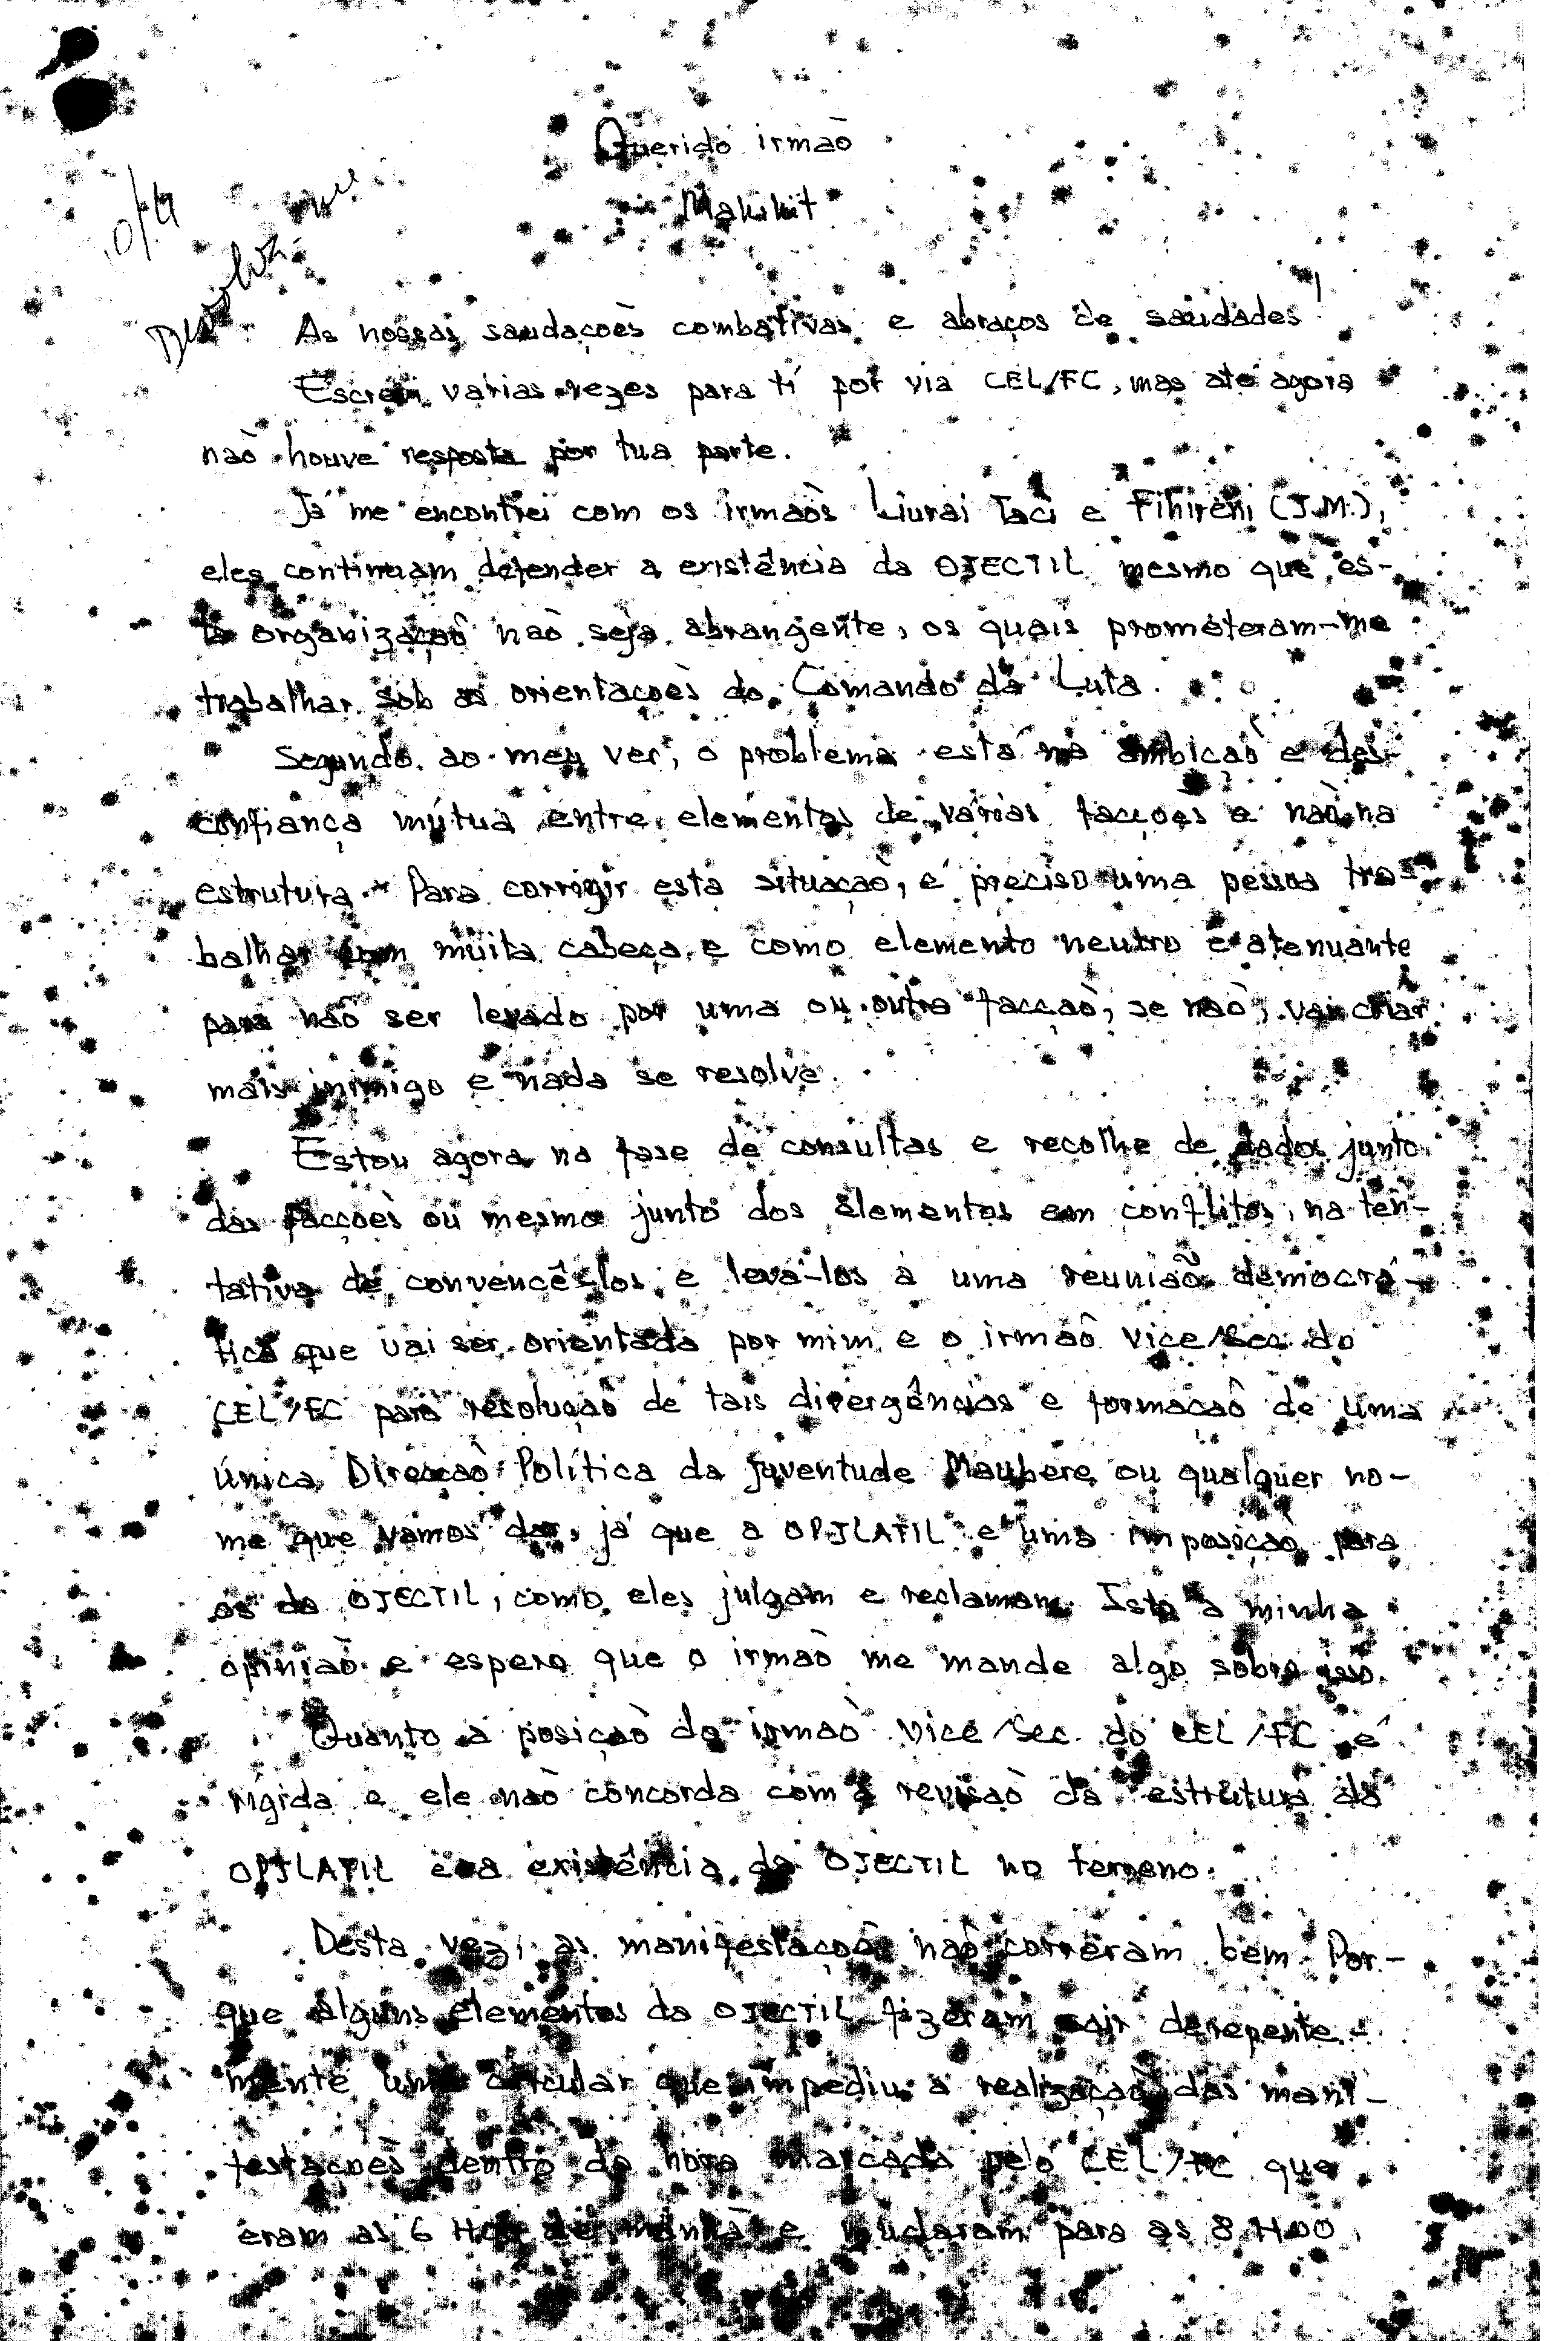 Querido irmaò
Makikit
Devolva-me
As nossas saudaçoès combativas e abraços de saudades!
Escrevi varias vezes para tí por via CEL/FC, mas até agora
naò houve resposta por tua parte.
Já me encontrei com os irmaòs Liurai Tací e Fihireni (J.M.),
eles continuam defender a existência da OJECTIL mesmo que es-
ta organizaçaò naò seja abrangente, os quais prometeram-me
trabalhar sob as orientaçoès do Comando da Luta.
Segundo ao meu ver, o problema está na ambiçaò e des-
confiança mútua entre elementos de várias facçoes e naò na
estrutura. Para corrigir esta situaçaò, é preciso uma pessoa tra-
balhar com muita cabeça e como elemento neutro e atenuante
para naò ser levado por uma ou outra facçaò, se naò, vai criar
mais inimigo e nada se resolve.
Estou agora na fase de consultas e recolhe de dados junto
das facçoès ou mesmo junto dos elementos em conflitos, na ten-
tativa de convencê-los e levá-los à uma reuniaõ democrá-
tica que vai ser orientada por mim e o irmaò Vice/Sec. do
CEL/FC para resoluçaò de tais divergências e formaçaò de uma
única Direcçaò Política da Juventude Maubere ou qualquer no-
me que vamos dar, já que a OPJLATIL é uma imposiçaò para
os da OJECTIL, como eles julgam e reclamam. Isto a minha
opiniaò e espero que o irmaò me mande algo sobre isso.
Quanto a posiçaò do irmaò Vice/Sec. do CEL/FC é
rígida e ele naò concorda com a revisaò da estrutura da
OPJLATIL e a existência da OJECTIL no terreno.
Desta vez, as manifestaçoès naò correram bem. Por-
que alguns elementos da OJECTIL fizeram sair derepente-
mente uma circular que impediu a realizaçaò das mani-
festaçoès dentro da hora marcada pelo CEL/FC que
eram as 6 H00 de manhà e mudaram para as 8 H00,